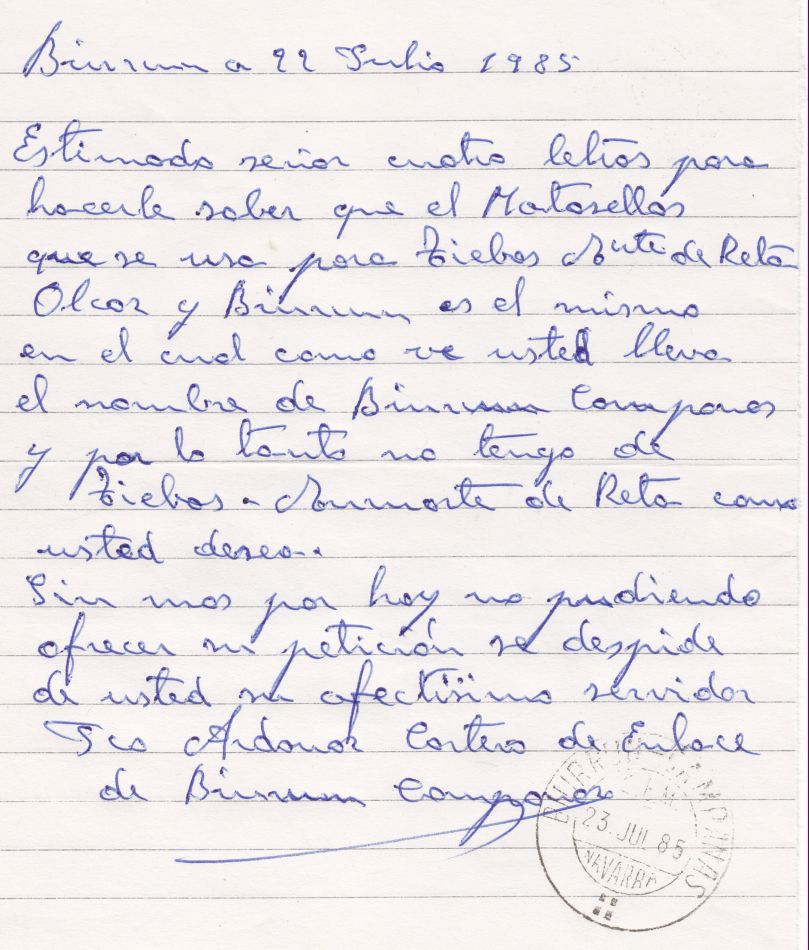 Biurrun a 22 Julio 1985
Estimado señor cuatro letras para
hacerle saber que el Matasellos
que se usa para Tiebas Mte de Reta
Olcoz y Biurrun es el mismo
en el cual como ve usted lleva
el nombre de Biurrun Campanas
y por lo tanto no tengo de
Tiebas - Muruarte de Reta como
usted desea.
Sin mas por hoy no pudiendo
ofrecer su petición se despide
de usted su afectisimo servidor
Fco Ardanaz Cartero de Enlace
de Biurrun Campanas
BIURRUN-CAMPANAS
23. JUL 85
NAVARRA